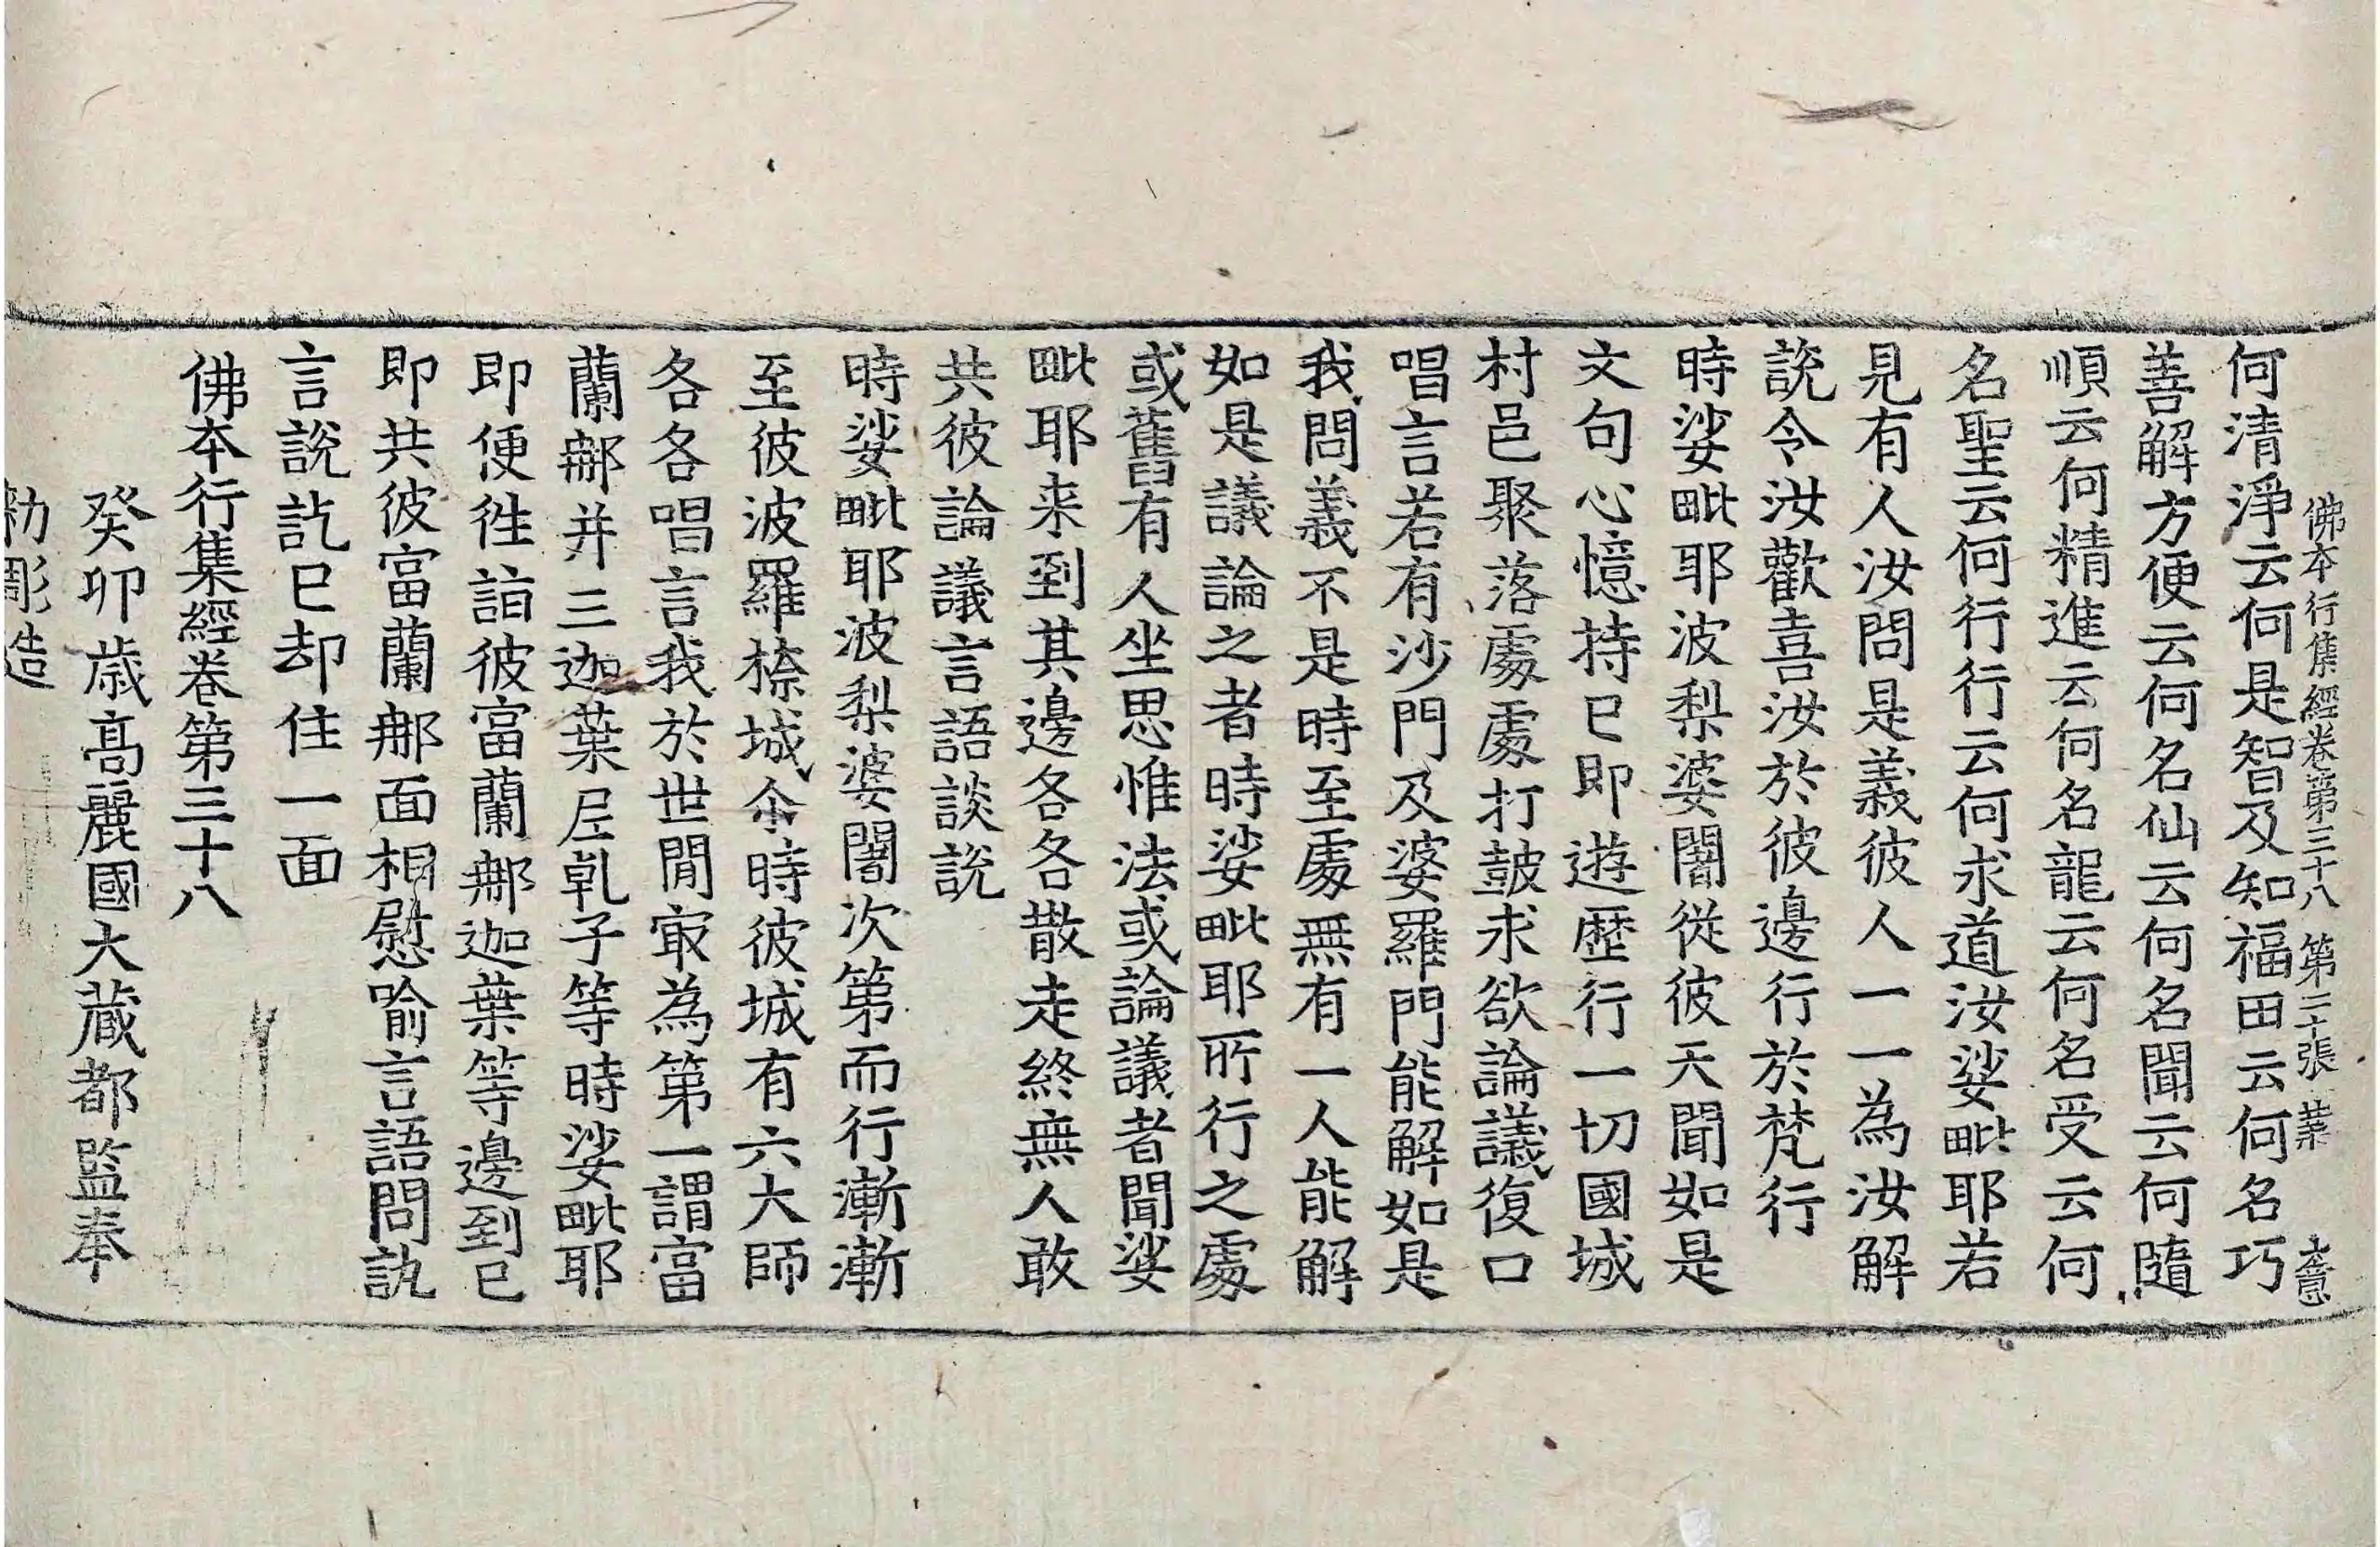 佛本行集經卷第三十八　第二十張　業　大意
何清淨云何是智及知福田云何名巧
善解方便云何名仙云何名聞云何隨
順云何精進云何名龍云何名受云何
名聖云何行行云何求道汝娑毗耶若
見有人汝問是義彼人一一為汝解
說令汝歡喜汝於彼邊行於梵行
時娑毗耶波梨婆闍從彼天聞如是
文句心憶持已即遊歷行一切國城
村邑聚落處處打鼓求欲論議復口
唱言若有沙門及婆羅門能解如是
我問義不是時至處無有一人能解
如是議論之者時娑毗耶所行之處
或舊有人坐思惟法或論議者聞娑
毗耶来到其邊各各散走終無人敢
共彼論議言語談說
時娑毗耶波梨婆闍次第而行漸漸
至彼波羅㮈城尒時彼城有六大師
各各唱言我於世間㝡為第一謂富
蘭那并三迦葉尼乹子等時娑毗耶
即便往詣彼富蘭那迦葉等邊到已
即共彼富蘭那面相慰喻言語問訊
言說訖已却住一面
佛本行集經卷第三十八
癸卯歲高麗國大藏都監奉
勑彫造